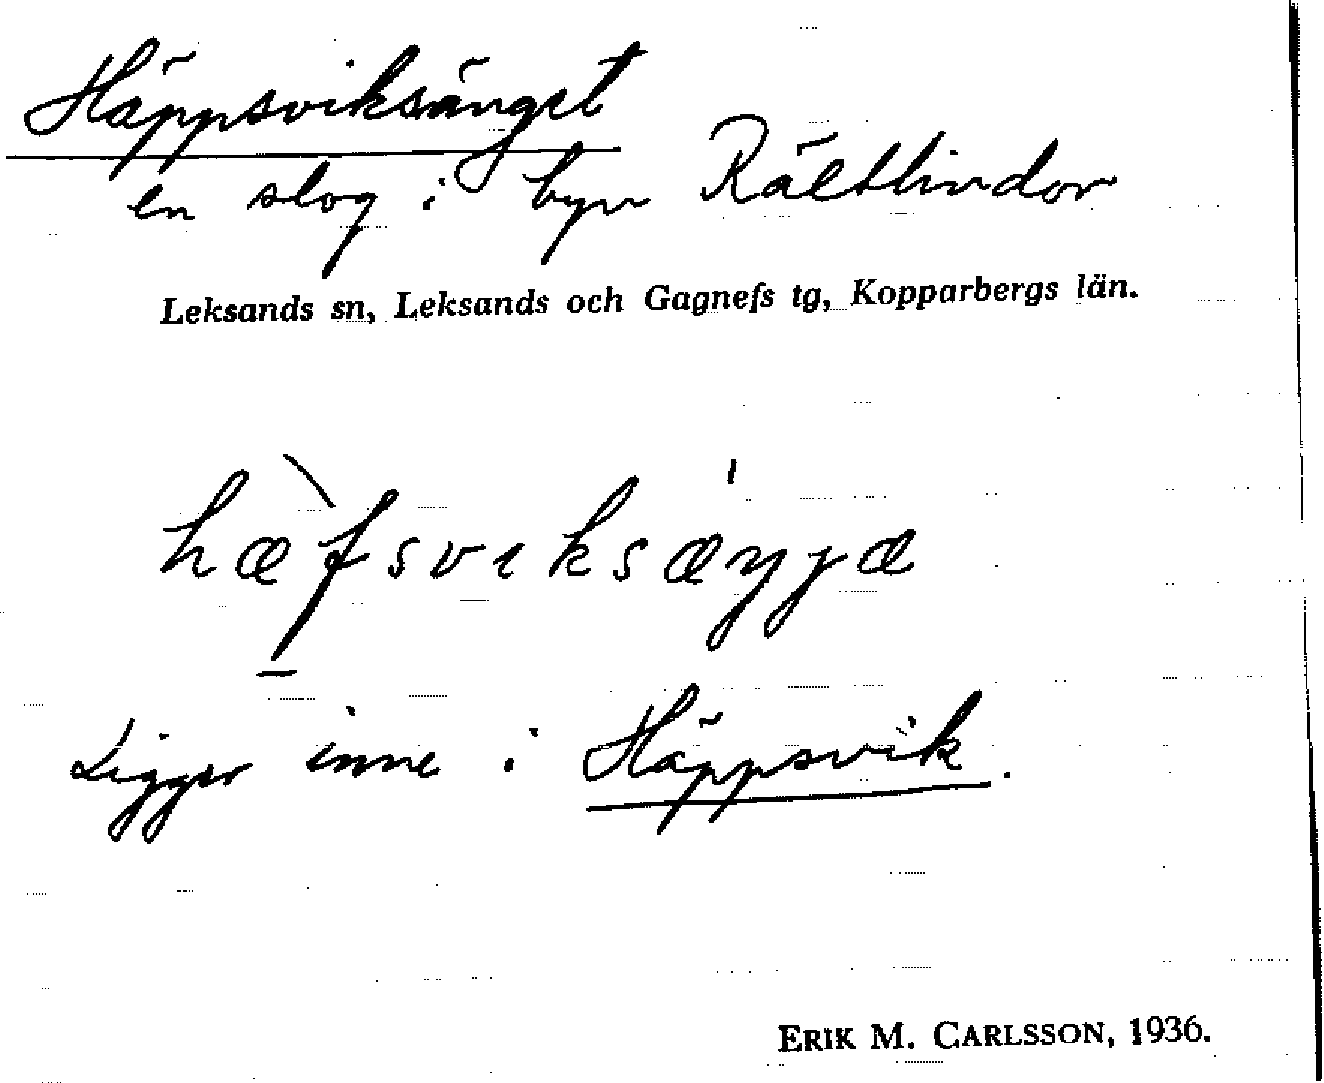 Häppsviksänget
en slog i byn Rältlindor
Leksands sn, Leksands och Gagnefs tg, Kopparbergs län.
hæ̀fsviksæŋja
Ligger inne i Häppsvik.
ERIK M. CARLSSON, 1936.